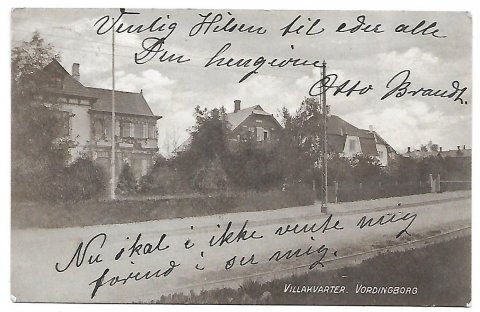 Venlig Hilsen til eder alle
Den hengivne
Otto Brandt.
Nu skal i ikke vente mig
forind i ser mig.
VILLAKVARTER. VORDINGBORG